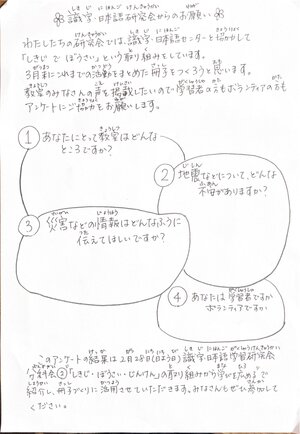 識字・日本語研究会からのお願い
わたしたちの研究会では、識字・日本語センターと協力して
「しきじ で ぼうさい」という取り組みをしています。
3月末にこれまでの活動をまとめた冊子をつくろうと思います。
教室のみなさんの声を掲載したいので学習者の方もボランティアの方も
アンケートにご協力をお願いします。
① あなたにとって教室はどんな
ところですか?
② 地震などについて、どんな
不安がありますか?
③ 災害などの情報はどんなふうに
伝えてほしいですか?
④ あなたは学習者ですか
ボランティアですか
このアンケートの結果は2月28日(日よう日)識字・日本語学習研究会
分科会②「しきじ・ぼうさい・じんけん」の取り組みから学んだためで
紹介し、冊子づくりに活用させていただきます。みなさんもぜひ参加して
ください。